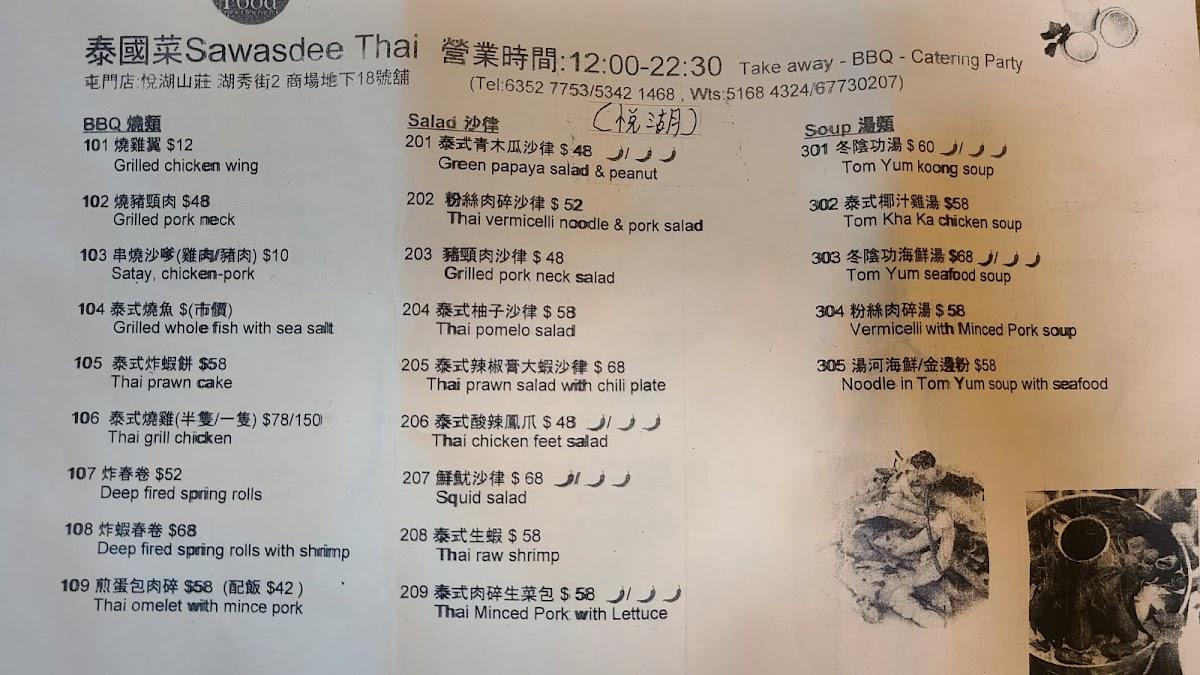 Food
泰國菜Sawasdee Thai 營業時間:12:00-22:30 Take away - BBQ - Catering Party
屯門店:悅湖山莊 湖秀街2 商場地下18號舖 (Tel:6352 7753/5342 1468 , Wts:5168 4324/67730207)
(悅湖)
BBQ 燒類
101 燒雞翼 $12
Grilled chicken wing
102 燒豬頸肉 $48
Grilled pork neck
103 串燒沙爹(雞肉/豬肉) $10
Satay, chicken-pork
104 泰式燒魚 $(市價)
Grilled whole fish with sea salt
105 泰式炸蝦餅 $58
Thai prawn cake
106 泰式燒雞(半隻/一隻) $78/150
Thai grill chicken
107 炸春卷 $52
Deep fired spring rolls
108 炸蝦春卷 $68
Deep fired spring rolls with shrimp
109 煎蛋包肉碎 $58 (配飯 $42 )
Thai omelet with mince pork
Salad 沙律
201 泰式青木瓜沙律 $ 48
Green papaya salad & peanut
202 粉絲肉碎沙律 $ 52
Thai vermicelli noodle & pork salad
203 豬頸肉沙律 $ 48
Grilled pork neck salad
204 泰式柚子沙律 $ 58
Thai pomelo salad
205 泰式辣椒膏大蝦沙律 $ 68
Thai prawn salad with chili plate
206 泰式酸辣鳳爪 $ 48
Thai chicken feet salad
207 鮮魷沙律 $ 68
Squid salad
208 泰式生蝦 $ 58
Thai raw shrimp
209 泰式肉碎生菜包 $ 58
Thai Minced Pork with Lettuce
Soup 湯類
301 冬陰功湯 $ 60
Tom Yum koong soup
302 泰式椰汁雞湯 $58
Tom Kha Ka chicken soup
303 冬陰功海鮮湯 $68
Tom Yum seafood soup
304 粉絲肉碎湯 $ 58
Vermicelli with Minced Pork soup
305 湯河海鮮/金邊粉 $58
Noodle in Tom Yum soup with seafood